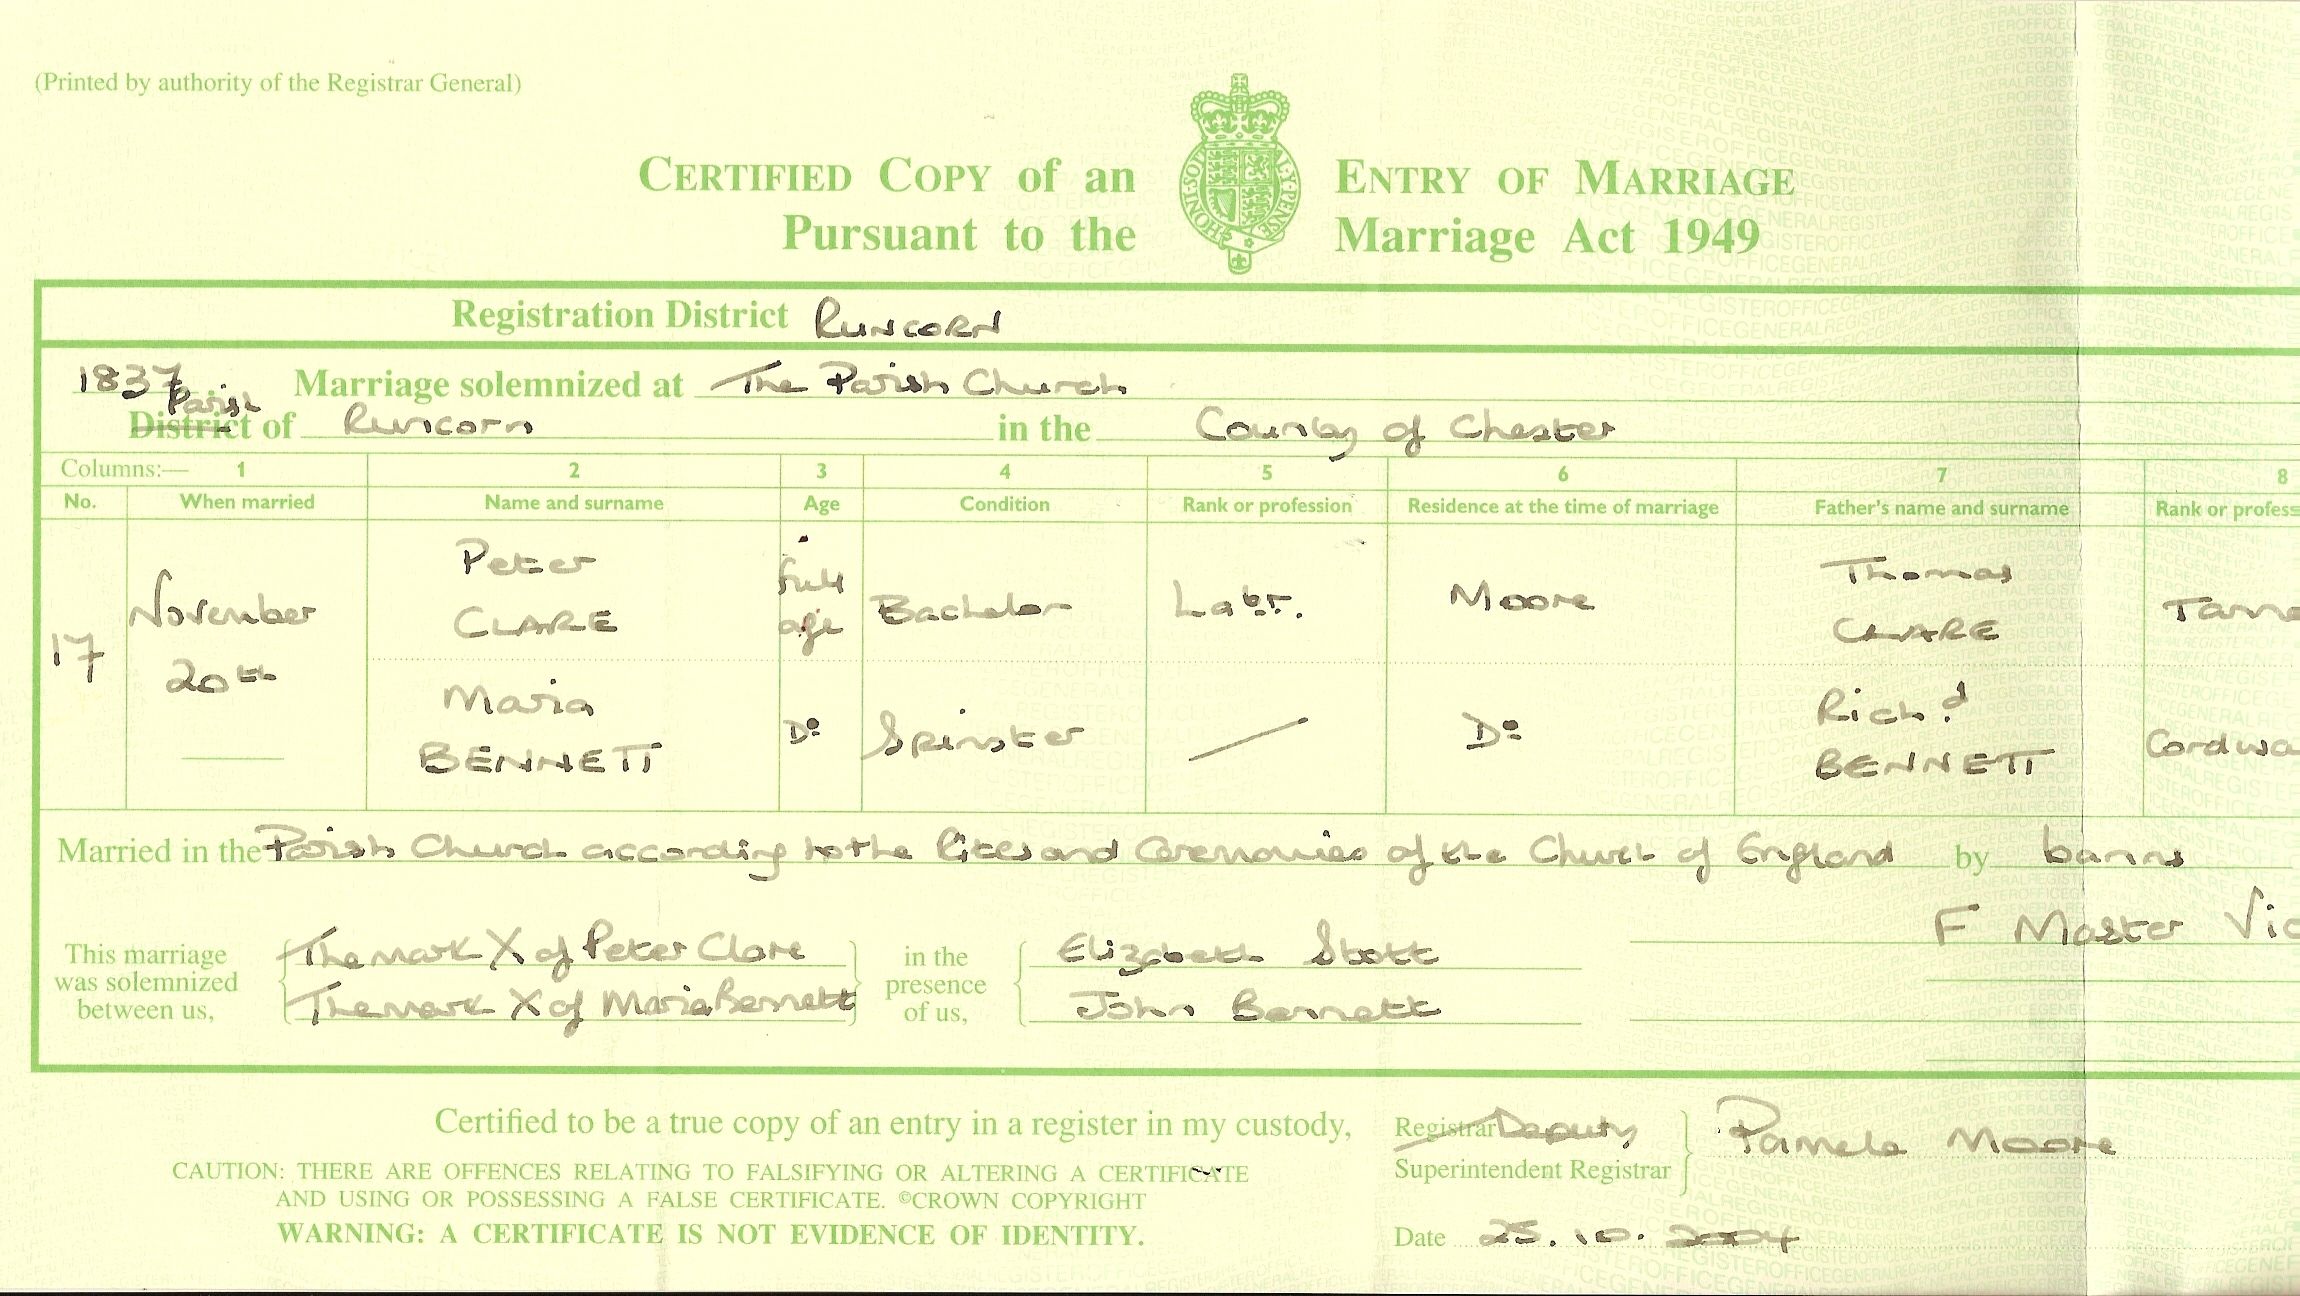 (Printed by authority of the Registrar General)
CERTIFIED COPY of an ENTRY OF MARRIAGE
Pursuant to the Marriage Act 1949
HONI·SOIT Y·PENSE
Registration District RUNCORN
1837 Marriage solemnized at The Parish Church
Parish
District of Runcorn in the County of Chester
Columns:— 1 2 3 4 5 6 7 8
No. When married Name and surname Age Condition Rank or profession Residence at the time of marriage Father's name and surname Rank or profess
17 November 20th Peter CLARE full age Bachelor Labr. Moore Thomas CLARE Tanne
Maria BENNETT Do Spinster Do Richd BENNETT Cordwa
Married in the Parish Church according to the Rites and Ceremonies of the Church of England by banns
F Master Vic
This marriage was solemnized between us, The mark X of Peter Clare in the presence of us, Elizabeth Stott
The mark X of Maria Bennett John Bennett
Certified to be a true copy of an entry in a register in my custody, Registrar Deputy Pamela Moore
Superintendent Registrar
CAUTION: THERE ARE OFFENCES RELATING TO FALSIFYING OR ALTERING A CERTIFICATE
AND USING OR POSSESSING A FALSE CERTIFICATE. ©CROWN COPYRIGHT
WARNING: A CERTIFICATE IS NOT EVIDENCE OF IDENTITY.
Date 25.10.2004